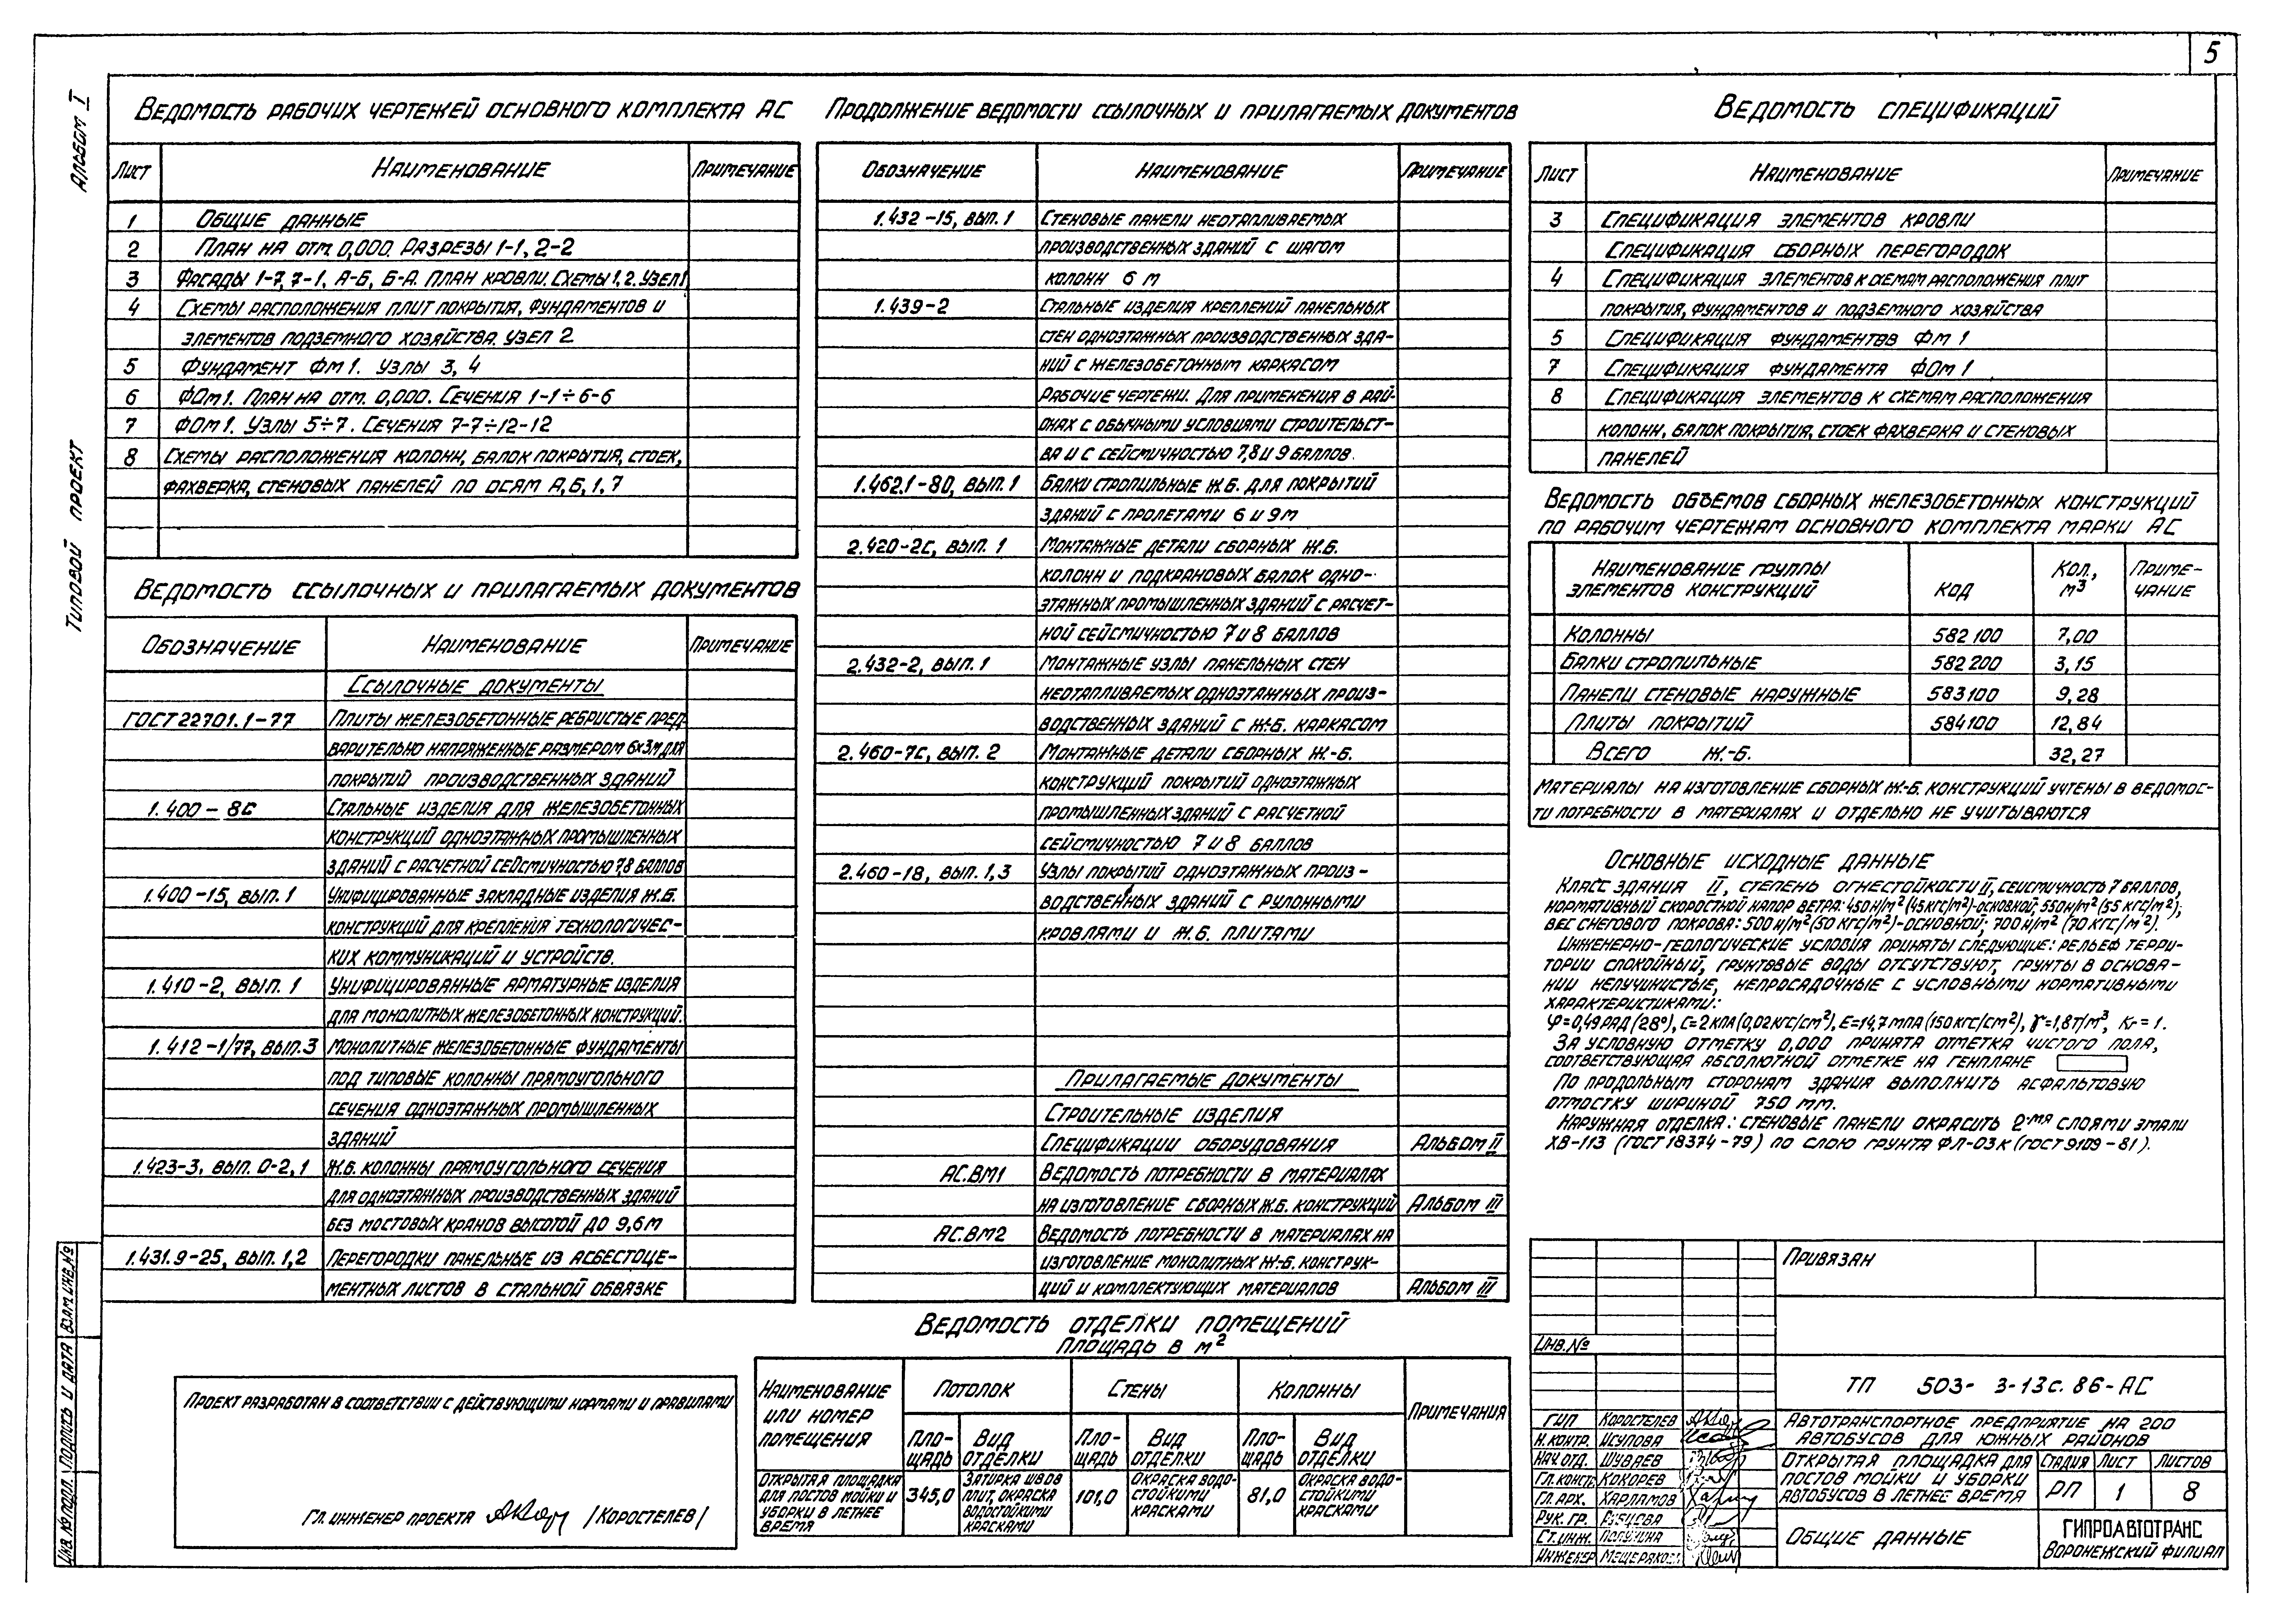 5
Альбом I
Типовой проект
Ведомость рабочих чертежей основного комплекта АС
Лист Наименование Примечание
1 Общие данные
2 План на отм. 0,000. Разрезы 1-1, 2-2
3 Фасады 1-7, 7-1, А-Б, Б-А. План кровли. Схемы 1, 2. Узел 1
4 Схемы расположения плит покрытия, фундаментов и
элементов подземного хозяйства. Узел 2
5 Фундамент Фм 1. Узлы 3, 4
6 ФОм 1. План на отм. 0,000. Сечения 1-1÷6-6
7 ФОм 1. Узлы 5÷7. Сечения 7-7÷12-12
8 Схемы расположения колонн, балок покрытия, стоек,
фахверка, стеновых панелей по осям А, Б, 1, 7
Ведомость ссылочных и прилагаемых документов
Обозначение Наименование Примечание
Ссылочные документы
ГОСТ 22701.1-77 Плиты железобетонные ребристые пред-
варительно напряженные размером 6х3м для
покрытий производственных зданий
1.400-8С Стальные изделия для железобетонных
конструкций одноэтажных промышленных
зданий с расчетной сейсмичностью 7,8 баллов
1.400-15, вып. 1 Унифицированные закладные изделия ж.б.
конструкций для крепления технологичес-
ких коммуникаций и устройств.
1.410-2, вып. 1 Унифицированные арматурные изделия
для монолитных железобетонных конструкций.
1.412-1/77, вып. 3 Монолитные железобетонные фундаменты
под типовые колонны прямоугольного
сечения одноэтажных промышленных
зданий
1.423-3, вып. 0-2, 1 Ж.б. колонны прямоугольного сечения
для одноэтажных производственных зданий
без мостовых кранов высотой до 9,6 м
1.431.9-25, вып. 1,2 Перегородки панельные из асбестоце-
ментных листов в стальной обвязке
Продолжение ведомости ссылочных и прилагаемых документов
Обозначение Наименование Примечание
1.432-15, вып. 1 Стеновые панели неотапливаемых
производственных зданий с шагом
колонн 6 м
1.439-2 Стальные изделия креплений панельных
стен одноэтажных производственных зда-
ний с железобетонным каркасом
Рабочие чертежи. Для применения в рай-
онах с обычными условиями строительст-
ва и с сейсмичностью 7,8 и 9 баллов.
1.462.1-80, вып. 1 Балки стропильные ж.б. для покрытий
зданий с пролетами 6 и 9м
2.420-2С, вып. 1 Монтажные детали сборных ж.б.
колонн и подкрановых балок одно-
этажных промышленных зданий с расчет-
ной сейсмичностью 7 и 8 баллов
2.432-2, вып. 1 Монтажные узлы панельных стен
неотапливаемых одноэтажных произ-
водственных зданий с ж-б. каркасом
2.460-7С, вып. 2 Монтажные детали сборных ж.-б.
конструкций покрытий одноэтажных
промышленных зданий с расчетной
сейсмичностью 7 и 8 баллов
2.460-18, вып. 1,3 Узлы покрытий одноэтажных произ-
водственных зданий с рулонными
кровлями и ж.б. плитами
Прилагаемые документы
Строительные изделия
Спецификации оборудования Альбом II
АС.ВМ1 Ведомость потребности в материалах
на изготовление сборных ж.б. конструкций Альбом III
АС.ВМ2 Ведомость потребности в материалах на
изготовление монолитных ж-б. конструк-
ций и комплектующих материалов Альбом III
Ведомость спецификаций
Лист Наименование Примечание
3 Спецификация элементов кровли
Спецификация сборных перегородок
4 Спецификация элементов к схемам расположения плит
покрытия, фундаментов и подземного хозяйства
5 Спецификация фундаментов Фм 1
7 Спецификация фундамента ФОм 1
8 Спецификация элементов к схемам расположения
колонн, балок покрытия, стоек фахверка и стеновых
панелей
Ведомость объемов сборных железобетонных конструкций
по рабочим чертежам основного комплекта марки АС
Наименование группы элементов конструкций Код Кол., м³ Приме-чание
Колонны 582 100 7,00
Балки стропильные 582 200 3,15
Панели стеновые наружные 583 100 9,28
Плиты покрытий 584 100 12,84
Всего ж.-б. 32,27
Материалы на изготовление сборных ж-б. конструкций учтены в ведомос-
ти потребности в материалах и отдельно не учитываются
Основные исходные данные
Класс здания II, степень огнестойкости II, сейсмичность 7 баллов,
нормативный скоростной напор ветра: 450 н/м² (45 кгс/м²)-основной; 550 н/м² (55 кгс/м²);
вес снегового покрова: 500 н/м² (50 кгс/м²)-основной; 700 н/м² (70 кгс/м²).
Инженерно-геологические условия приняты следующие: рельеф терри-
тории спокойный, грунтовые воды отсутствуют, грунты в основа-
нии непучинистые, непросадочные с условными нормативными
характеристиками:
φ=0,49 рад (28°), С=2 кПа (0,02 кгс/см²), Е=14,7 мПа (150 кгс/см²), γ=1,8 т/м³, Кг=1.
За условную отметку 0,000 принята отметка чистого пола,
соответствующая абсолютной отметке на генплане
По продольным сторонам здания выполнить асфальтовую
отмостку шириной 750 мм.
Наружная отделка: стеновые панели окрасить 2-мя слоями эмали
ХВ-113 (ГОСТ 18374-79) по слою грунта ФЛ-03К (ГОСТ 9109-81).
Ведомость отделки помещений
Площадь в м²
Наименование или номер помещения Потолок Стены Колонны Примечания
Пло-щадь Вид отделки Пло-щадь Вид отделки Пло-щадь Вид отделки
Открытая площадка для постов мойки и уборки в летнее время 345,0 Затирка швов плит, окраска водостойкими красками 101,0 Окраска водо-стойкими красками 81,0 Окраска водо-стойкими красками
Проект разработан в соответствии с действующими нормами и правилами
Гл. инженер проекта /Коростелев/
Инв. № подл. Подпись и дата Взам. инв. №
Привязан
Инв. №
ТП 503-3-13с.86-АС
ГИП Коростелев
Н. контр. Исупова
Нач. отд. Шуваев
Гл. констр. Кокорев
Гл. арх. Харламов
Рук. гр. Рубцова
Ст. инж.
Инженер Мещерякова
Автотранспортное предприятие на 200
автобусов для южных районов
Открытая площадка для
постов мойки и уборки
автобусов в летнее время
Стадия Лист Листов
РП 1 8
Общие данные
ГИПРОАВТОТРАНС
Воронежский филиал